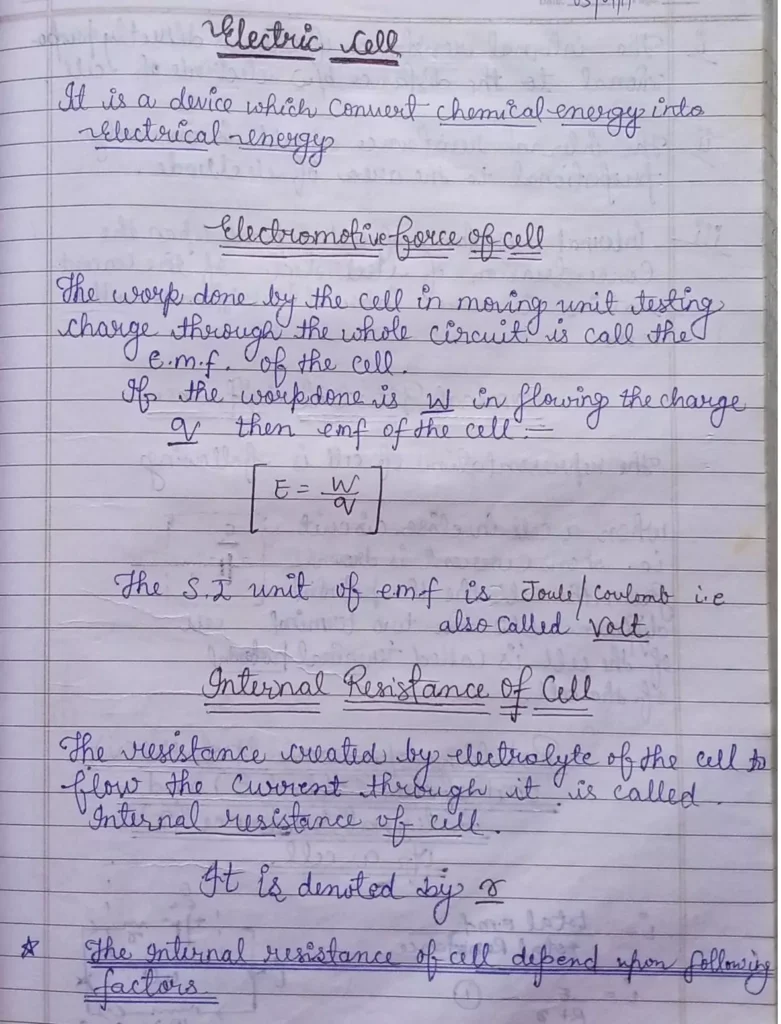 Electric Cell
It is a device which Convert chemical energy into
Electrical energy
Electromotive force of cell
The work done by the cell in moving unit testing
charge through the whole circuit is call the
e.m.f. of the cell.
If the workdone is W in flowing the charge
q then emf of the cell :-
E = W/q
The S.I unit of emf is Joule/Coulomb i.e
also called Volt
Internal Resistance of Cell
The resistance created by electrolyte of the cell to
flow the current through it is called
Internal resistance of cell.
It is denoted by r
☆ The Internal resistance of cell depend upon following
factors